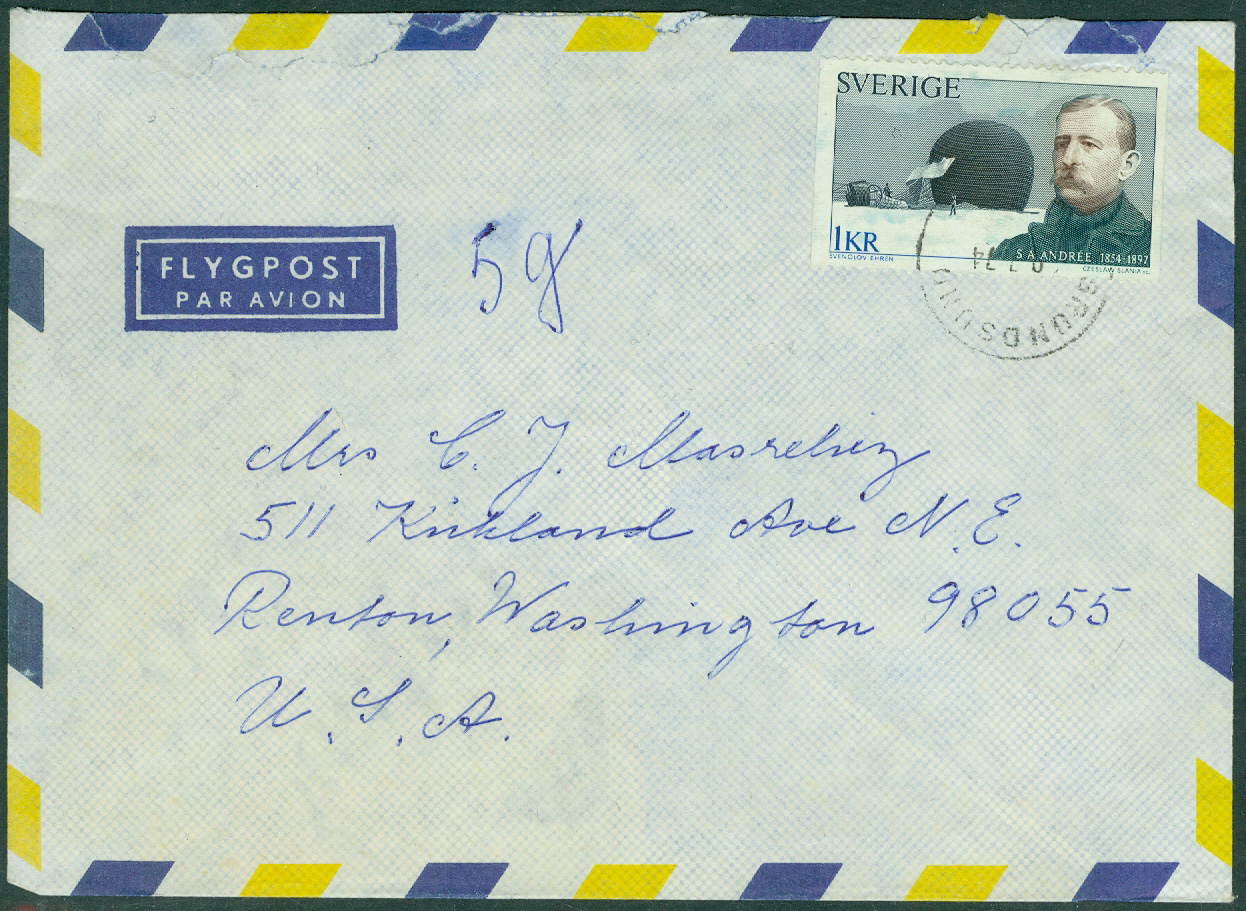 SVERIGE
1KR
SVENOLOV EHREN
S A ANDRÉE 1854-1897
CZESLAW SLANIA sc.
GRUNDSUND
74
FLYGPOST
PAR AVION
5 g
Mrs C. J. Masreliez
511 Kirkland Ave N.E.
Renton, Washington 98055
U.S.A.